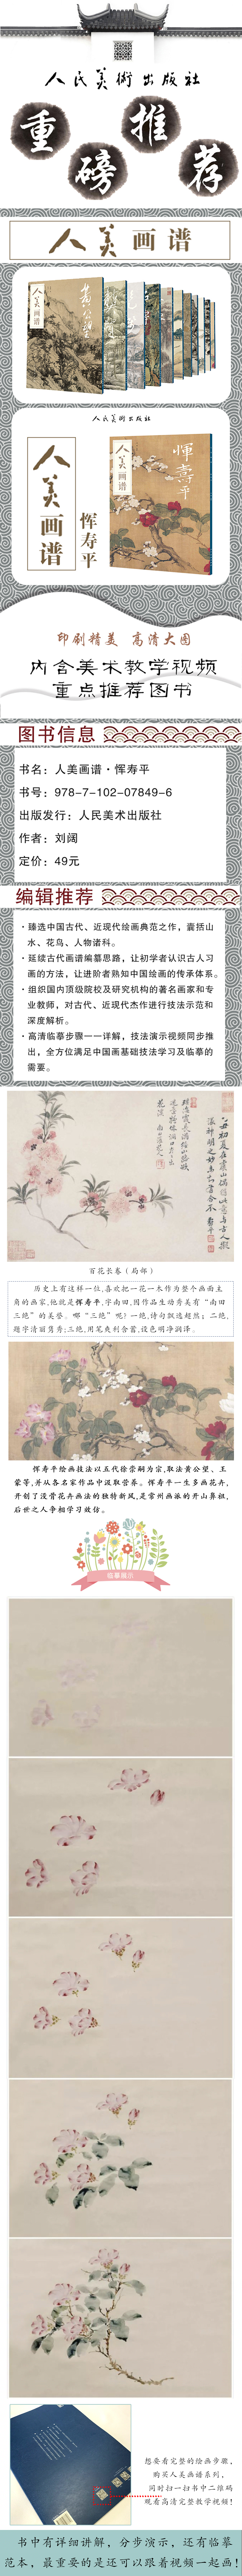 人民美術出版社
重
磅
推
荐
人美画谱
人美画谱
人民美術出版社
人美画谱
恽寿平
人美画谱
恽寿平
印刷精美 高清大图
内含美术教学视频
重点推荐图书
图书信息
书名：人美画谱·恽寿平
书号：978-7-102-07849-6
出版发行：人民美术出版社
作者：刘阔
定价：49元
编辑推荐
·臻选中国古代、近现代绘画典范之作，囊括山
水、花鸟、人物诸科。
·延续古代画谱编纂思路，让初学者认识古人习
画的方法，让进阶者熟知中国绘画的传承体系。
·组织国内顶级院校及研究机构的著名画家和专
业教师，对古代、近现代杰作进行技法示范和
深度解析。
·高清临摹步骤一一详解，技法演示视频同步推
出，全方位满足中国画基础技法学习及临摹的
需要。
百花长卷（局部）
历史上有这样一位,喜欢把一花一木作为整个画面主
角的画家,他就是恽寿平,字南田,因作品生动秀美有“南田
三绝”的美誉。哪“三绝”呢？一绝,诗句飘逸超然；二绝,
题字清丽隽秀;三绝,用笔爽利含蓄,设色明净润泽。
恽寿平绘画技法以五代徐崇嗣为宗,取法黄公望、王
蒙等,并从各名家作品中汲取营养。恽寿平一生多画花卉,
开创了没骨花卉画法的独特新风,是常州画派的开山鼻祖,
后世之人争相学习效仿。
临摹展示
想要看完整的绘画步骤,
购买人美画谱系列,
同时扫一扫书中二维码
观看高清完整教学视频!
书中有详细讲解，分步演示，还有临摹
范本，最重要的是还可以跟着视频一起画!